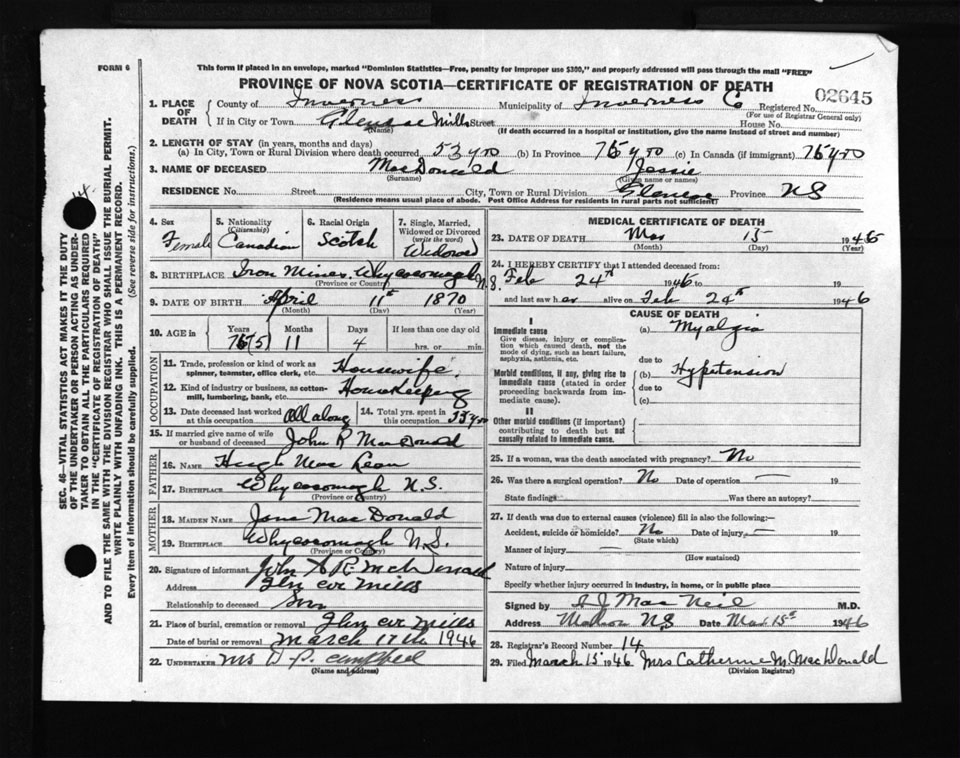 FORM 6
This form if placed in an envelope, marked "Dominion Statistics—Free, penalty for improper use $300," and properly addressed will pass through the mail "FREE"
PROVINCE OF NOVA SCOTIA—CERTIFICATE OF REGISTRATION OF DEATH
02645
1. PLACE OF DEATH County of Inverness Municipality of Inverness Co Registered No.
(For use of Registrar General only)
If in City or Town Glencoe Mills Street House No.
(Name) (If death occurred in a hospital or institution, give the name instead of street and number)
2. LENGTH OF STAY (in years, months and days)
(a) In City, Town or Rural Division where death occurred 53 yrs (b) In Province 75 yrs (c) In Canada (if immigrant) 75 yrs
3. NAME OF DECEASED MacDonald Jessie
(Surname) (Given name or names)
RESIDENCE No. Street City, Town or Rural Division Glencoe Province NS
(Residence means usual place of abode. Post Office Address for residents in rural parts not sufficient)
4. Sex Female
5. Nationality (Citizenship) Canadian
6. Racial Origin Scotch
7. Single, Married, Widowed or Divorced (write the word) Widow
8. BIRTHPLACE Iron Mines, Whycocomagh N.S.
(Province or Country)
9. DATE OF BIRTH April 11th 1870
(Month) (Day) (Year)
10. AGE in Years 76(75) Months 11 Days 4 If less than one day old hrs. or min.
OCCUPATION
11. Trade, profession or kind of work as spinner, teamster, office clerk, etc. Housewife
12. Kind of industry or business, as cotton-mill, lumbering, bank, etc. Housekeeping
13. Date deceased last worked at this occupation All along
14. Total yrs. spent in this occupation 53 yrs
15. If married give name of wife or husband of deceased John R MacDonald
FATHER
16. NAME Hugh Mac Lean
17. BIRTHPLACE Whycocomagh N.S.
(Province or Country)
MOTHER
18. MAIDEN NAME Jane MacDonald
19. BIRTHPLACE Whycocomagh N.S.
(Province or Country)
20. Signature of informant John A R. McDonald
Address Glen coe Mills
Relationship to deceased Son
21. Place of burial, cremation or removal Glen coe Mills
Date of burial or removal March 17th 1946
22. UNDERTAKER Mrs D P. Campbell
(Name and address)
MEDICAL CERTIFICATE OF DEATH
23. DATE OF DEATH Mar 15 1946
(Month) (Day) (Year)
24. I HEREBY CERTIFY that I attended deceased from:
Feb 24th 1946 to 19
and last saw her alive on Feb 24th 1946
CAUSE OF DEATH
I
Immediate cause (a) Myalgia
Give disease, injury or complication which caused death, not the mode of dying, such as heart failure, asphyxia, asthenia, etc.
due to
Morbid conditions, if any, giving rise to immediate cause (stated in order proceeding backwards from immediate cause). (b) Hypetension
due to
(c)
II
Other morbid conditions (if important) contributing to death but not causally related to immediate cause.
25. If a woman, was the death associated with pregnancy? No
26. Was there a surgical operation? No Date of operation — 19
State findings Was there an autopsy?
27. If death was due to external causes (violence) fill in also the following:—
Accident, suicide or homicide? No Date of injury — 19
(State which)
Manner of injury —
(How sustained)
Nature of injury
Specify whether injury occurred in industry, in home, or in public place
Signed by A J Mac Neil M.D.
Address Mabou NS Date Mar. 15th 1946
28. Registrar's Record Number 14
29. Filed March 15 1946 Mrs Catherine M. MacDonald
(Division Registrar)
SEC. 46—VITAL STATISTICS ACT MAKES IT THE DUTY
OF THE UNDERTAKER OR PERSON ACTING AS UNDER-
TAKER TO OBTAIN ALL THE PARTICULARS REQUIRED
IN THE "CERTIFICATE OF REGISTRATION OF DEATH"
AND TO FILE THE SAME WITH THE DIVISION REGISTRAR WHO SHALL ISSUE THE BURIAL PERMIT.
WRITE PLAINLY WITH UNFADING INK. THIS IS A PERMANENT RECORD.
Every item of information should be carefully supplied. (See reverse side for instructions.)